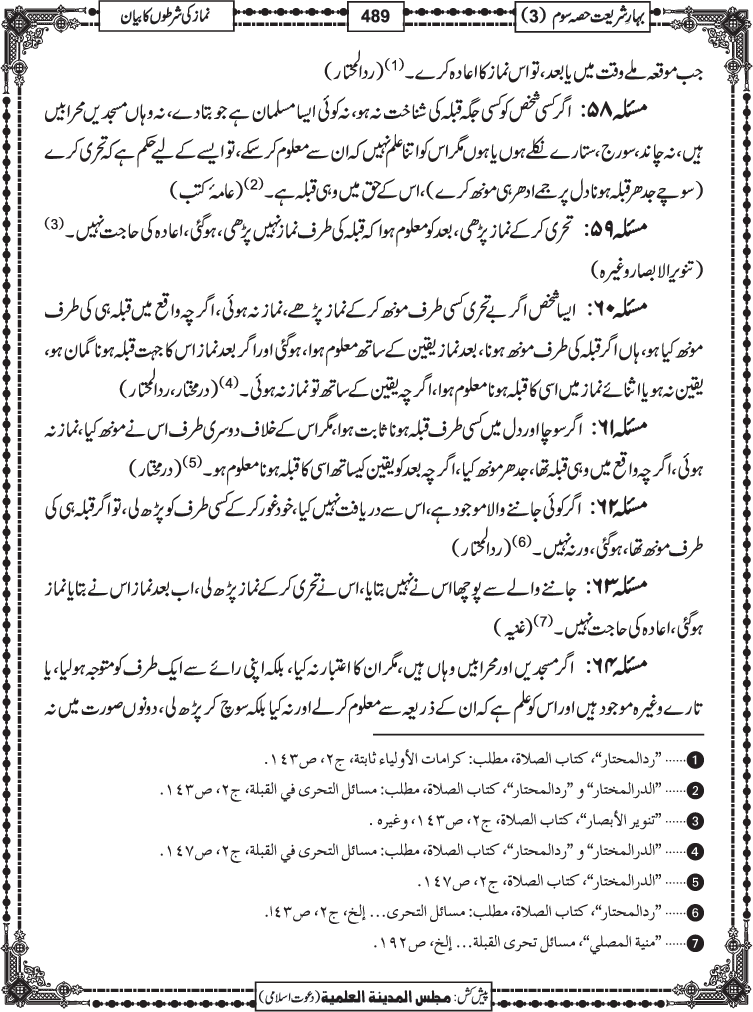 بہارِ شریعت حصہ سوم (3)
489
نماز کی شرطوں کا بیان
جب موقعہ ملے وقت میں یا بعد، تو اس نماز کا اعادہ کرے۔(1) (ردالمحتار)
مسئلہ ۵۸: اگر کسی شخص کو کسی جگہ قبلہ کی شناخت نہ ہو، نہ کوئی ایسا مسلمان ہے جو بتادے، نہ وہاں مسجدیں محرابیں
ہیں، نہ چاند، سورج، ستارے نکلے ہوں یا ہوں مگر اس کو اتنا علم نہیں کہ ان سے معلوم کرسکے، تو ایسے کے لیے حکم ہے کہ تحری کرے
(سوچے جدھر قبلہ ہونا دل پر جمے ادھر ہی مونھ کرے)، اس کے حق میں وہی قبلہ ہے۔(2) (عامۂ کتب)
مسئلہ ۵۹: تحری کر کے نماز پڑھی، بعد کو معلوم ہوا کہ قبلہ کی طرف نماز نہیں پڑھی، ہوگئی، اعادہ کی حاجت نہیں۔(3)
(تنویر الابصار وغیرہ)
مسئلہ ۶۰: ایسا شخص اگر بے تحری کسی طرف مونھ کر کے نماز پڑھے، نماز نہ ہوئی، اگرچہ واقع میں قبلہ ہی کی طرف
مونھ کیا ہو، ہاں اگر قبلہ کی طرف مونھ ہونا، بعد نماز یقین کے ساتھ معلوم ہوا، ہوگئی اور اگر بعد نماز اس کا جہت قبلہ ہونا گمان ہو،
یقین نہ ہو یا اثنائے نماز میں اسی کا قبلہ ہونا معلوم ہوا، اگرچہ یقین کے ساتھ تو نماز نہ ہوئی۔(4) (درمختار، ردالمحتار)
مسئلہ ۶۱: اگر سوچا اور دل میں کسی طرف قبلہ ہونا ثابت ہوا، مگر اس کے خلاف دوسری طرف اس نے مونھ کیا، نماز نہ
ہوئی، اگرچہ واقع میں وہی قبلہ تھا، جدھر مونھ کیا، اگرچہ بعد کو یقین کیساتھ اسی کا قبلہ ہونا معلوم ہو۔(5) (درمختار)
مسئلہ ۶۲: اگر کوئی جاننے والا موجود ہے، اس سے دریافت نہیں کیا، خود غور کر کے کسی طرف کو پڑھ لی، تو اگر قبلہ ہی کی
طرف مونھ تھا، ہوگئی، ورنہ نہیں۔(6) (ردالمحتار)
مسئلہ ۶۳: جاننے والے سے پوچھا اس نے نہیں بتایا، اس نے تحری کر کے نماز پڑھ لی، اب بعد نماز اس نے بتایا نماز
ہوگئی، اعادہ کی حاجت نہیں۔(7) (غنیہ)
مسئلہ ۶۴: اگر مسجدیں اور محرابیں وہاں ہیں، مگر ان کا اعتبار نہ کیا، بلکہ اپنی رائے سے ایک طرف کو متوجہ ہولیا، یا
تارے وغیرہ موجود ہیں اور اس کو علم ہے کہ ان کے ذریعہ سے معلوم کرلے اور نہ کیا بلکہ سوچ کر پڑھ لی، دونوں صورت میں نہ
1 ...... ”ردالمحتار“، كتاب الصلاة، مطلب: كرامات الأولياء ثابتة، ج٢، ص١٤٣.
2 ...... ”الدرالمختار“ و ”ردالمحتار“، كتاب الصلاة، مطلب: مسائل التحرى في القبلة، ج٢، ص١٤٣.
3 ...... ”تنوير الأبصار“، كتاب الصلاة، ج٢، ص١٤٣، وغيره .
4 ...... ”الدرالمختار“ و ”ردالمحتار“، كتاب الصلاة، مطلب: مسائل التحرى في القبلة، ج٢، ص١٤٧.
5 ...... ”الدرالمختار“، كتاب الصلاة، ج٢، ص١٤٧.
6 ...... ”ردالمحتار“، كتاب الصلاة، مطلب: مسائل التحرى... إلخ، ج٢، ص١٤٣.
7 ...... ”منية المصلي“، مسائل تحرى القبلة... إلخ، ص١٩٢.
پیش کش: مجلس المدينة العلمية (دعوت اسلامی)